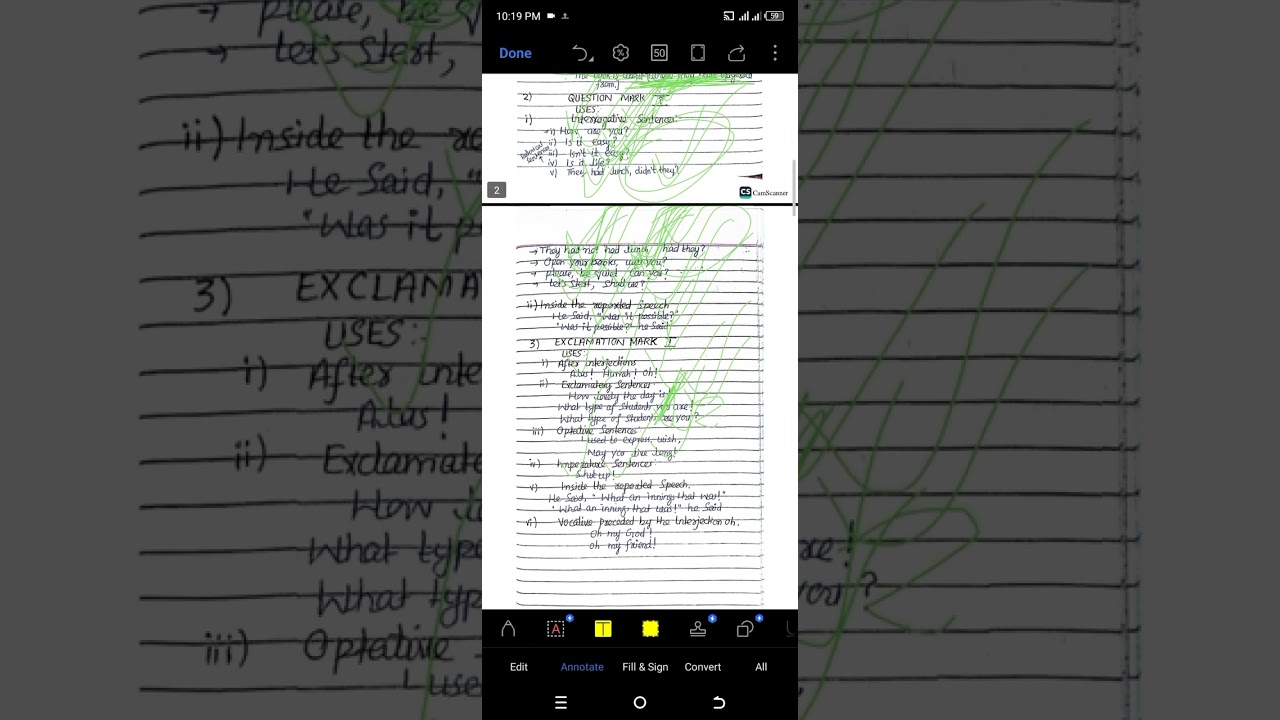 10:19 PM
59
Done
50
from.]
2) QUESTION MARK ?
USES:
i) Interrogative Sentences:-
i) How are you?
ii) Is it easy?
iii) Isn't it easy?
iv) Is it life?
v) They had lunch, didn't they?
2
CS CamScanner
→ They had not had lunch had they?
→ Open your books, will you?
→ please, be quiet can you?
→ Let's Start, Shall we?
ii) Inside the reported Speech
He Said, "Was it possible?"
"Was it possible?" he Said
3) EXCLAMATION MARK !
USES:
i) After interjections
Alas! Hurrah! Oh!
ii) Exclamatory Sentences
How lovely the day is!
What type of Student you are!
What type of Student are you?
iii) Optative Sentences
used to express, wish,
May you live long!
iv) Imperative Sentences:
Shut up!
v) Inside the reported Speech.
He Said, "What an inning that was!"
"What an inning that was!" he Said
vi) Vocative preceded by the Interjection oh.
Oh my God!
oh my friend!
Edit
Annotate
Fill & Sign
Convert
All
please, be
→ Let's Start,
ii) Inside the
He Said, "
"Was it
3) EXCLAMA
USES:
i) After inte
Alas!
ii) Exclamate
How
What typ
are!
What typ
you?
iii) Optative